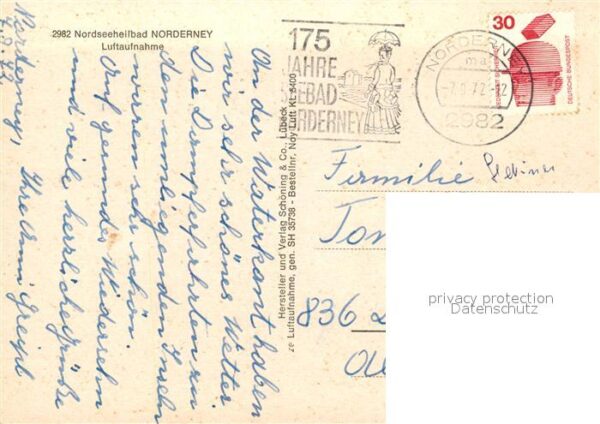 2982 Nordseeheilbad NORDERNEY
Luftaufnahme
Norderney,
7.9.72
An der Waterkant haben
wir sehr schönes Wetter
Die Dampferfahrten zu
den umliegenden Inseln
waren sehr schön.
Auf gesundes Wiedersehn
und viele herzliche Grüße
Ihre Anni
Hersteller und Verlag Schöning & Co., Lübeck
Luftaufnahme, gen. SH 35738 - Bestellnr. Noy Luft KL 5400
175
JAHRE
EBAD
ORDERNEY
NORDERNEY
ma
-7.9.72-12
2982
30
DEUTSCHE BUNDESPOST
Firmilie
Tom
836
privacy protection
Datenschutz